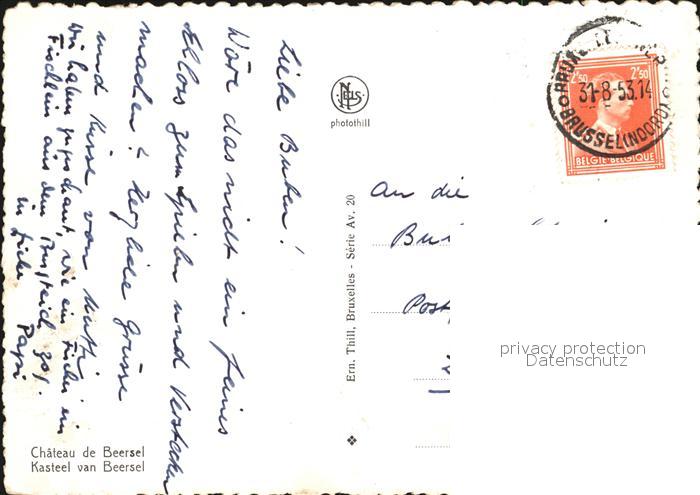 Liebe Buben!
Wäre das nicht ein feines
Schloss zum Spielen und Verstecken
machen? Herzliche Grüsse
und Küsse von Mutti
Wir haben zugeschaut, wie ein Fischer ein
Fischlein aus dem Burgteich zog.
Papi
NELS
photothill
Ern. Thill, Bruxelles - Série Av. 20
31-8-53.14
BRUSSEL (NOORD)
2,50 2,50
BELGIE-BELGIQUE
An die
privacy protection
Datenschutz
Château de Beersel
Kasteel van Beersel